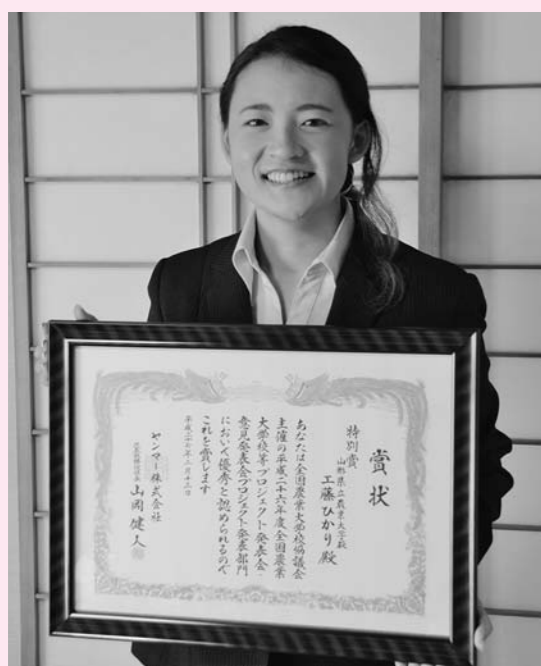 賞状
特別賞
山形県立農業大学校
工藤ひかり殿
あなたは全国農業大学校協議会
主催の平成二十六年度全国農業
大学校等プロジェクト発表会・
意見発表会プロジェクト発表部門
において優秀と認められるので
これを賞します
平成二十七年二月十三日
ヤンマー株式会社
山岡健人